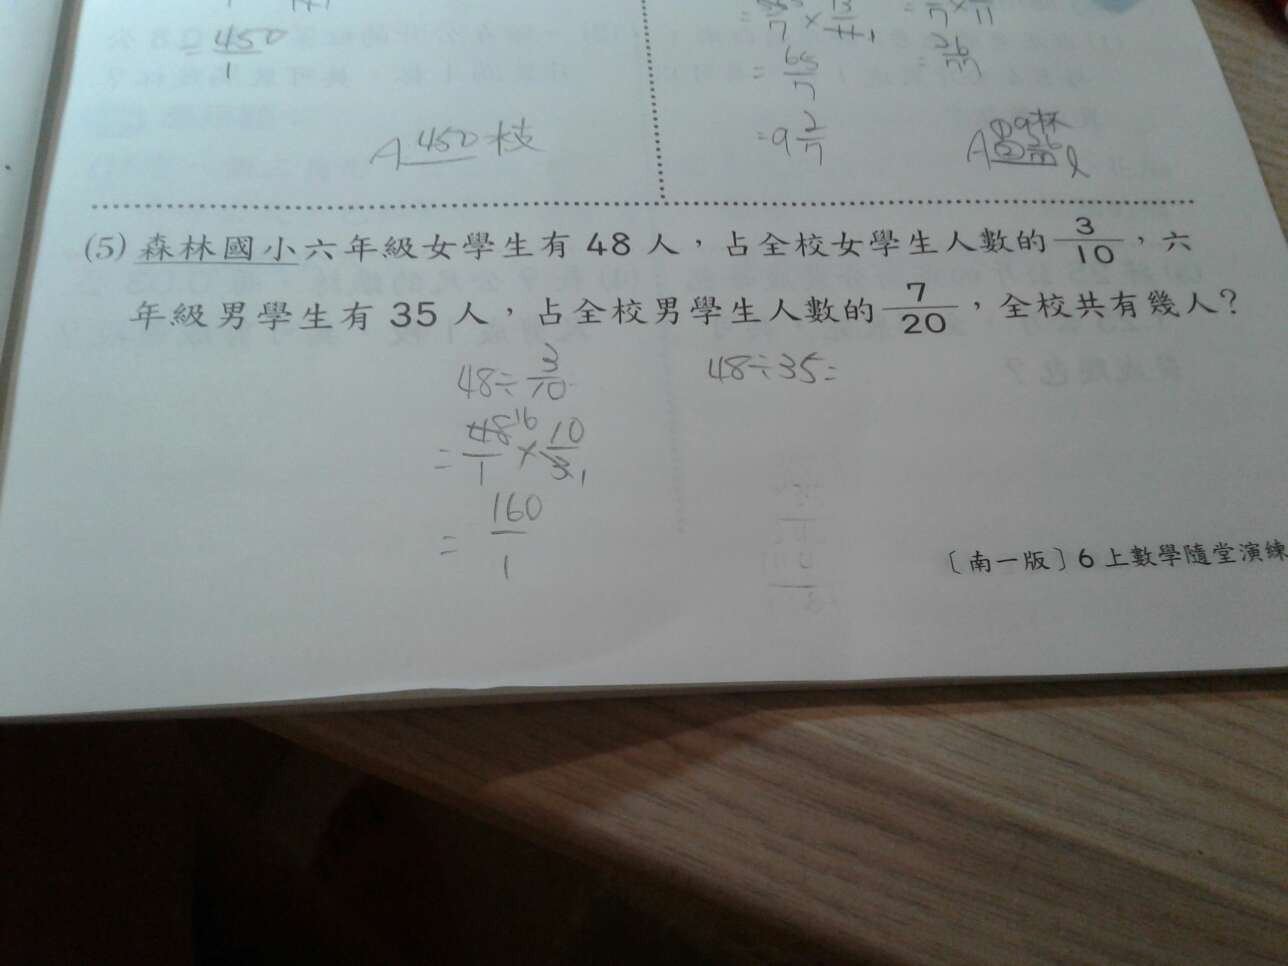 = 450/1
A 450枝
= 65/7
= 9 2/7
= 26/77
A ①9杯
② 26/77 l
(5) 森林國小六年級女學生有 48 人，占全校女學生人數的 3/10，六
年級男學生有 35 人，占全校男學生人數的 7/20，全校共有幾人？
48÷3/10
48÷35=
= 48/1 16 × 10/3 1
= 160/1
〔南一版〕6 上數學隨堂演練